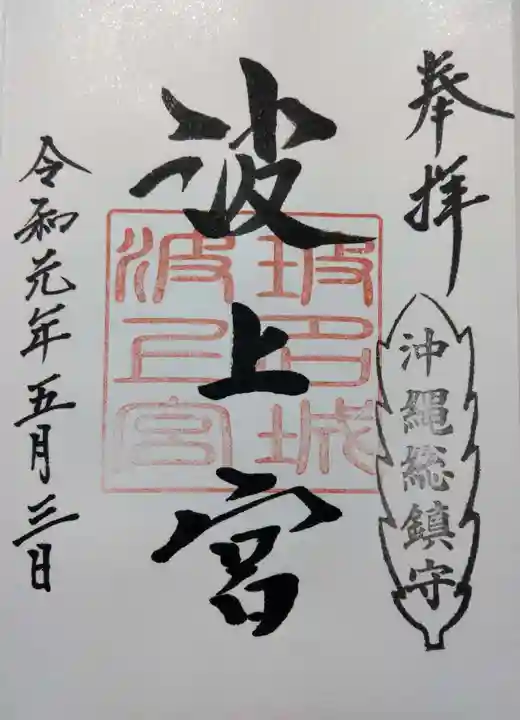 奉拝
沖縄総鎮守
波上宮
玻名城
波上宮
令和元年五月三日